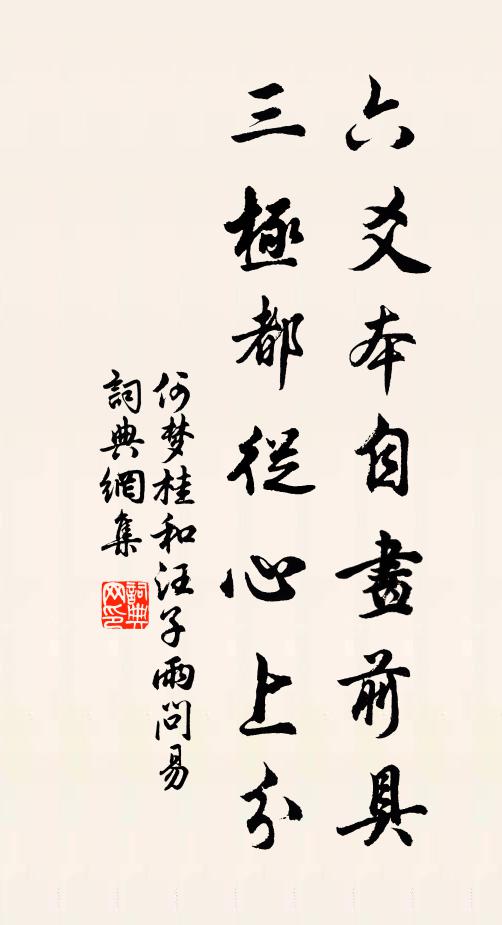 六爻本自畫前具
三極都從心上分
何梦桂和汪子雨問易
詞典網集
詞典
网印